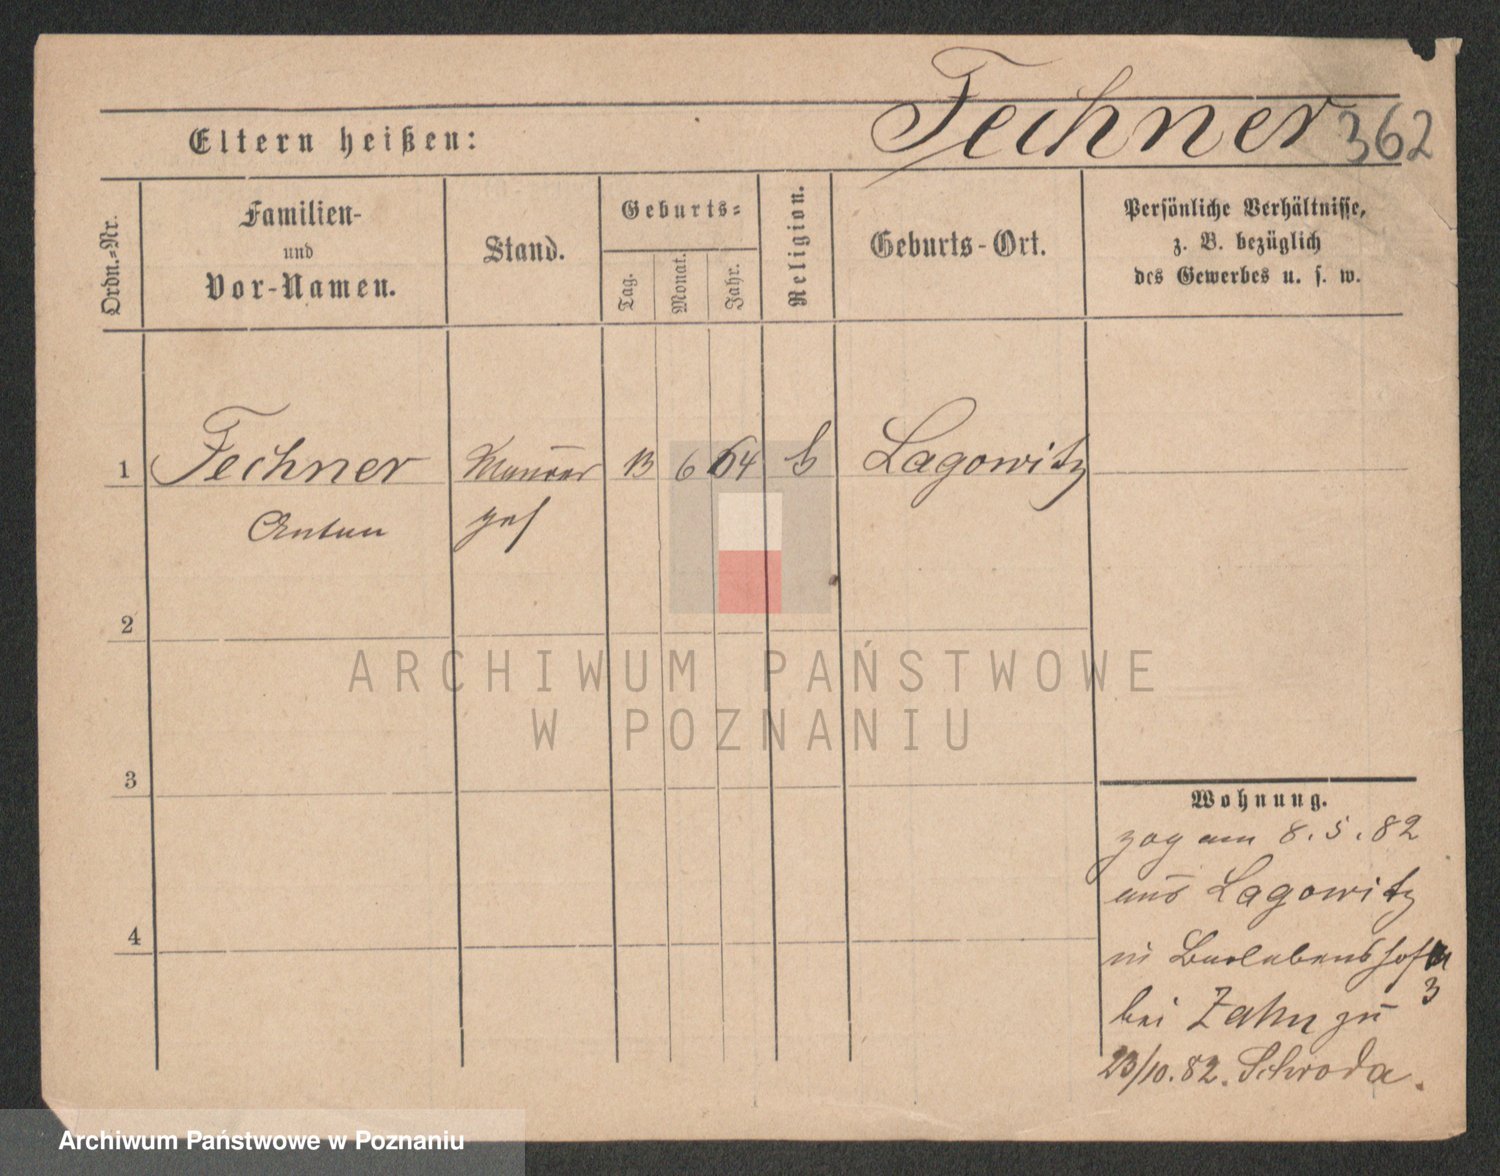 Fechner 362
Eltern heißen:
Ordn.-Nr.
Familien-
und
Vor-Namen.
Stand.
Geburts-
Tag.
Monat.
Jahr.
Religion.
Geburts-Ort.
Persönliche Verhältnisse,
z. B. bezüglich
des Gewerbes u. s. w.
1 Fechner Maurer 13 6 64 Lagowitz
Anton ges
2
3
4
ARCHIWUM PAŃSTWOWE
W POZNANIU
Wohnung.
zog am 8.5.82
aus Lagowitz
in
3
bei Zahn zu
23/10.82. Schroda.
Archiwum Państwowe w Poznaniu